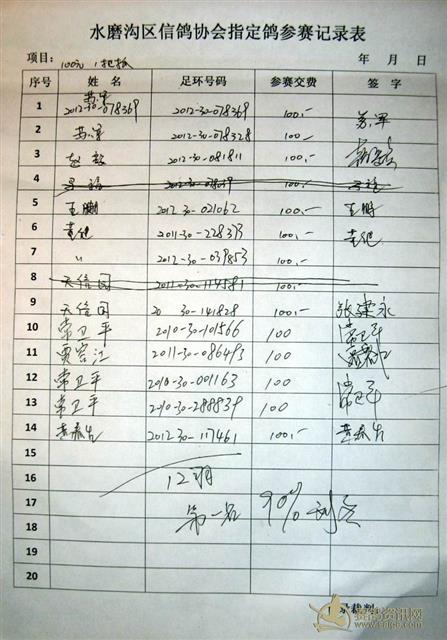 水磨沟区信鸽协会指定鸽参赛记录表
项目: 100元 1把抓 年 月 日
序号 姓 名 足环号码 参赛交费 签 字
1 苏军 2012-30-078369 2012-30-078369 100.- 苏军
2 苏军 2012-30-078328 100.-
3 2012-30-081811 100.-
4
5 王鹏 2012-30-021062 100.- 王鹏
6 2011-30-228373 100.-
7 〃 2012-30-039853 100.-
8 天信园 2011-30-114581
9 天信园 20 30-141828 100.- 张建永
10 常卫平 2010-30-101566 100 常卫平
11 贾容江 2011-30-086493 100
12 常卫平 2010-30-001163 100
13 常卫平 2010-30-288839 100 常卫平
14 2012-30-117461 100.-
15
16 12羽
17 第一名 90%
18
19
20
裁判
赛鸽资讯网